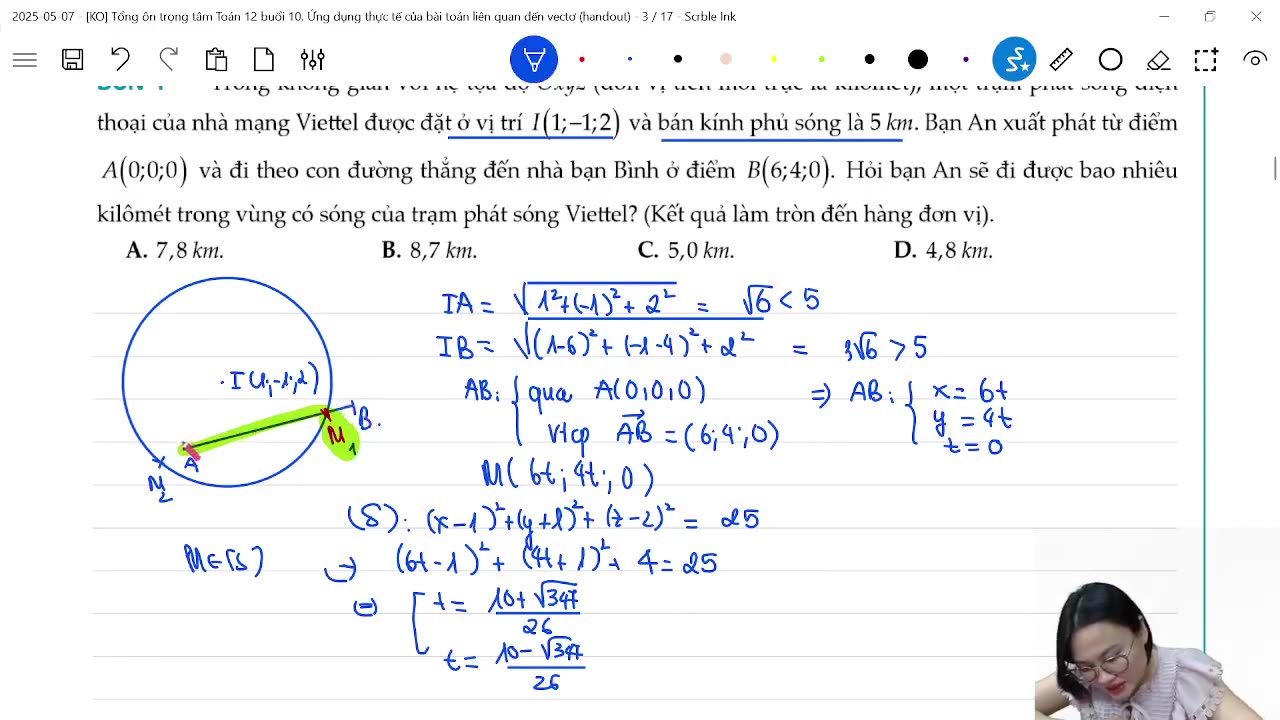 2025-05-07 - [KO] Tổng ôn trọng tâm Toán 12 buổi 10. Ứng dụng thực tế của bài toán liên quan đến vectơ (handout) - 3 / 17 - Scrble Ink
Trong không gian với hệ tọa độ Oxyz (đơn vị trên mỗi trục là kilômét), một trạm phát sóng điện
thoại của nhà mạng Viettel được đặt ở vị trí I(1;–1;2) và bán kính phủ sóng là 5 km. Bạn An xuất phát từ điểm
A(0;0;0) và đi theo con đường thẳng đến nhà bạn Bình ở điểm B(6;4;0). Hỏi bạn An sẽ đi được bao nhiêu
kilômét trong vùng có sóng của trạm phát sóng Viettel? (Kết quả làm tròn đến hàng đơn vị).
A. 7,8 km. B. 8,7 km. C. 5,0 km. D. 4,8 km.
IA = √(1²+(-1)²+2²) = √6 < 5
IB = √((1-6)²+(-1-4)²+2²) = 3√6 > 5
I(1;-1;2)
A
B.
M₁
M₂
AB: { qua A(0;0;0) => AB: { x = 6t
vtcp AB = (6;4;0) y = 4t
t = 0
M(6t;4t;0)
(S): (x-1)²+(y+1)²+(z-2)² = 25
M∈(S) → (6t-1)²+(4t+1)²+4=25
(=) [ t = (10+√347)/26
t = (10-√347)/26